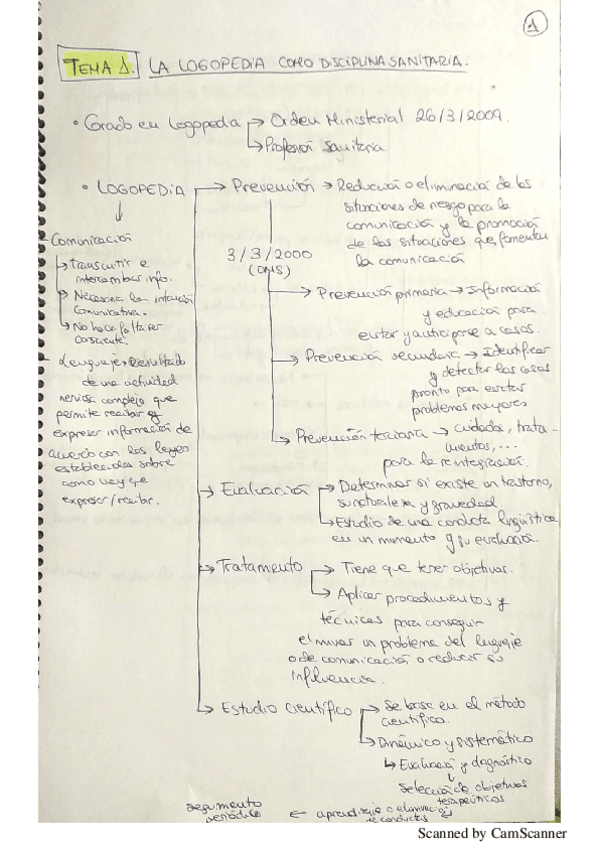 1
TEMA 1. LA LOGOPEDIA COMO DISCIPLINA SANITARIA.
• Grado en Logopedia → Orden Ministerial 26/3/2009.
→ Profesión Sanitaria
• LOGOPEDIA → Prevención → Reducción o eliminación de las
situaciones de riesgo para la
comunicación y la promoción
de las situaciones que fomentan
la comunicación
3/3/2000
(OMS)
→ Prevención primaria → Información
y educación para
evitar y anticiparse a casos.
→ Prevención secundaria → Identificar
y detectar los casos
pronto para evitar
problemas mayores
→ Prevención terciaria → cuidados, trata-
mientos,...
para la reintegración.
- Comunicación
→ Transmitir e
intercambiar info.
→ Necesaria la intención
comunicativa.
→ No hace falta ser
consciente.
- Lenguaje → Resultado
de una actividad
nerviosa compleja que
permite recibir y
expresar información de
acuerdo con las leyes
establecidas sobre
como hay que
expresar/recibir.
→ Evaluación → Determinar si existe un trastorno,
su naturaleza y gravedad
→ Estudio de una conducta lingüística
en un momento y su evaluación.
→ Tratamento → Tiene que tener objetivos.
→ Aplicar procedimientos y
técnicas para conseguir
eliminar un problema del lenguaje
o de comunicación o reducir su
influencia.
→ Estudio científico → Se basa en el método
científico.
→ Dinámico y sistemático
↳ Evaluación y diagnóstico
↓
Selección de objetivos
terapeúticos
← aprendizaje o eliminación
de conductas
seguimiento
periódico
Scanned by CamScanner